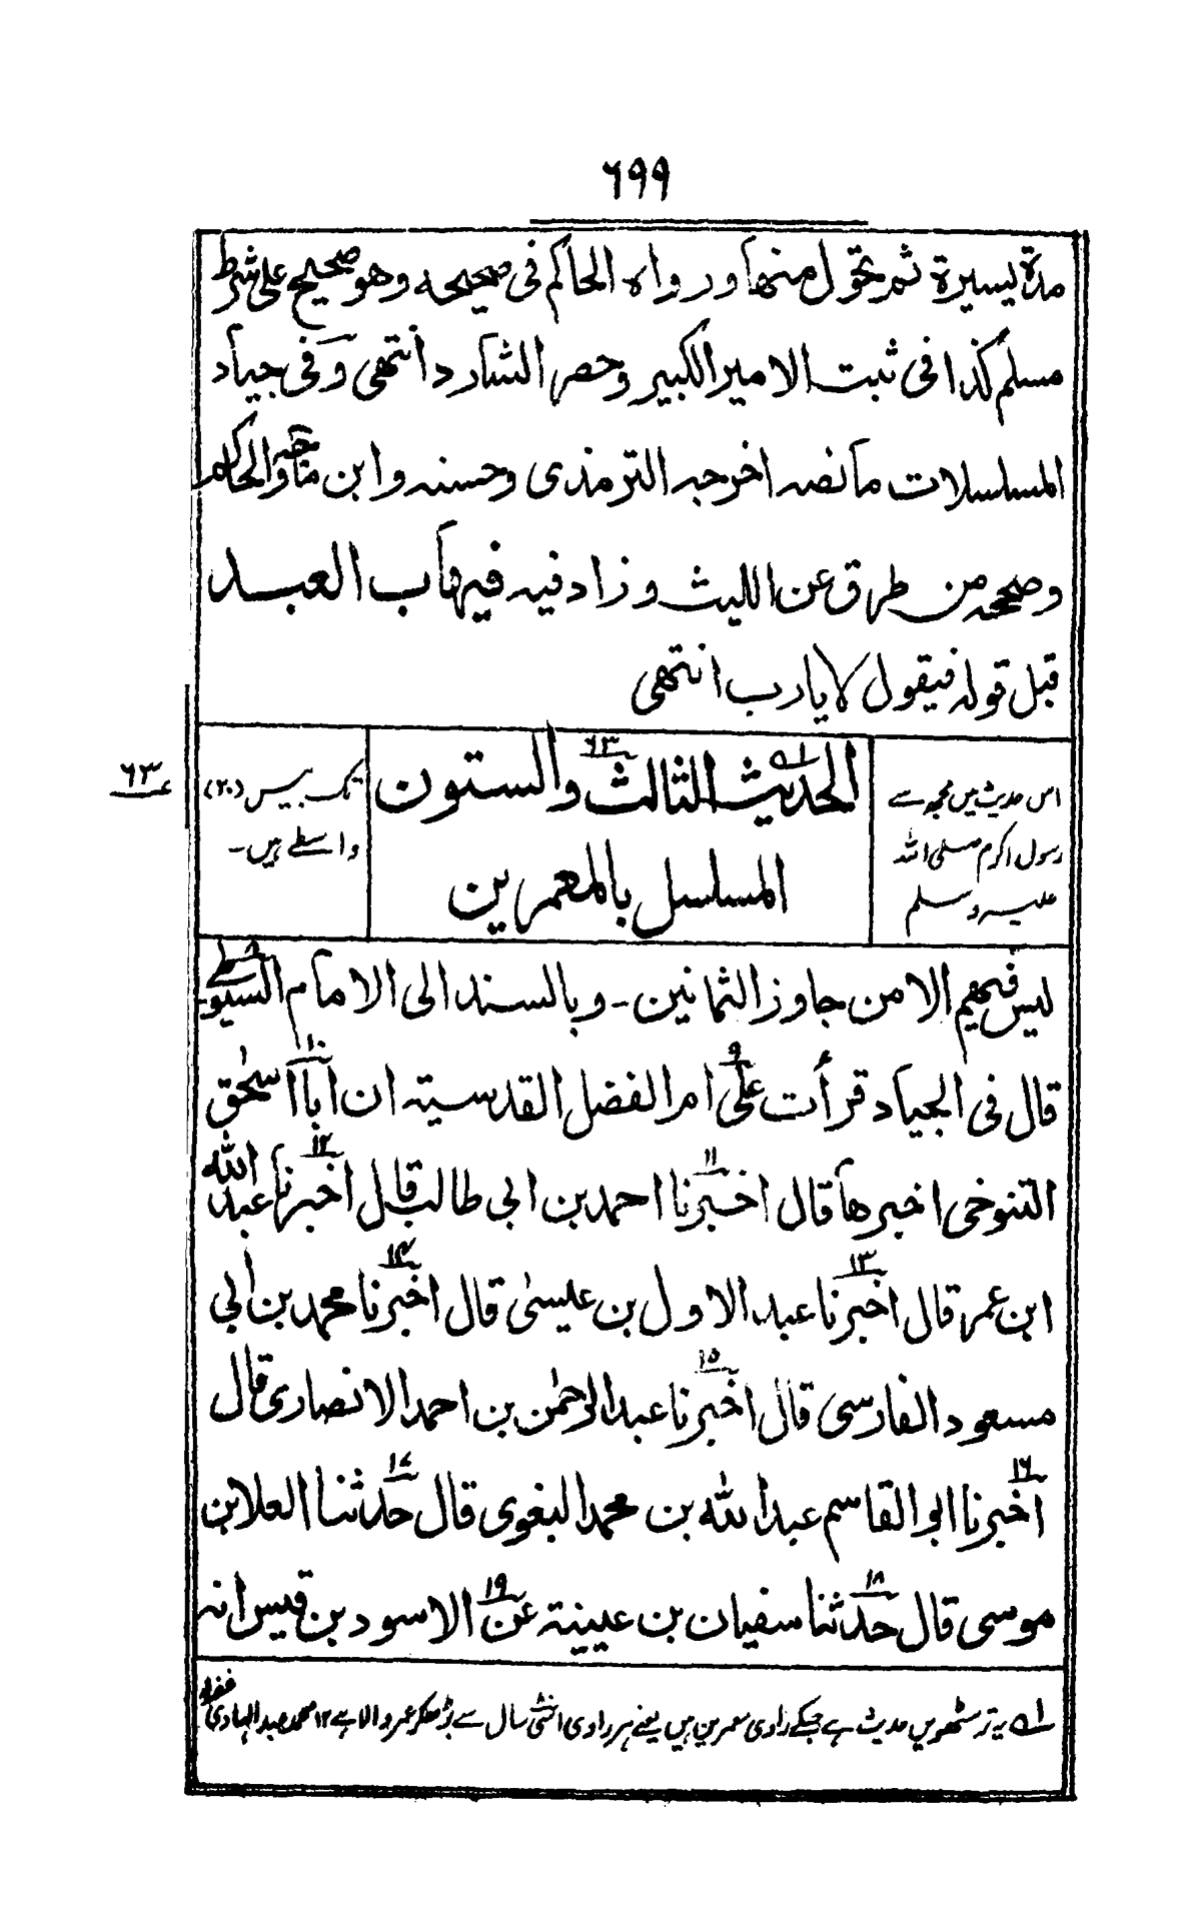 ٦٩٩
مدة يسيرة ثم تحول منها ورواه الحاكم فى صحيحه وهو صحيح على شرط
مسلم كذا فى ثبت الامير الكبير وحصر الشارد انتهى وفى جياد
المسلسلات مانصه اخرجه الترمذى وحسنه وابن ماجه والحاكم
وصححه من طرق عن الليث وزاد فيه فيهاب العبد
قبل قوله فيقول لا يارب انتهى
اس حدیث میں مجھ سے
رسول اکرم صلی اللہ
علیہ وسلم
الحديث الثالث والستون
٦٣
المسلسل بالمعمرين
تک بیس (۲۰)
واسطے ہیں۔
٦٣
ليس فيهم الا من جاوز الثمانين۔ وبالسند الى الامام السيوطى
قال فى الجياد قرأت على ام الفضل القدسية ان ابا اسحٰق
التنوخى اخبرها قال اخبرنا احمد بن ابى طالب قال اخبرنا عبد الله
ابن عمر قال اخبرنا عبد الاول بن عيسىٰ قال اخبرنا محمد بن ابى
مسعود الفارسى قال اخبرنا عبد الرحمٰن بن احمد الانصارى قال
اخبرنا ابو القاسم عبد الله بن محمد البغوى قال حدثنا العلا بن
موسى قال حدثنا سفيان بن عيينة عن الاسود بن قيس انه
لہ یہ ترسٹھویں حدیث ہے جسکے راوی معمرین ہیں یعنے ہر راوی اسّی سال سے بڑھکر عمر والا ہے ۱۲ محمد عبد الہادی غفرلہ